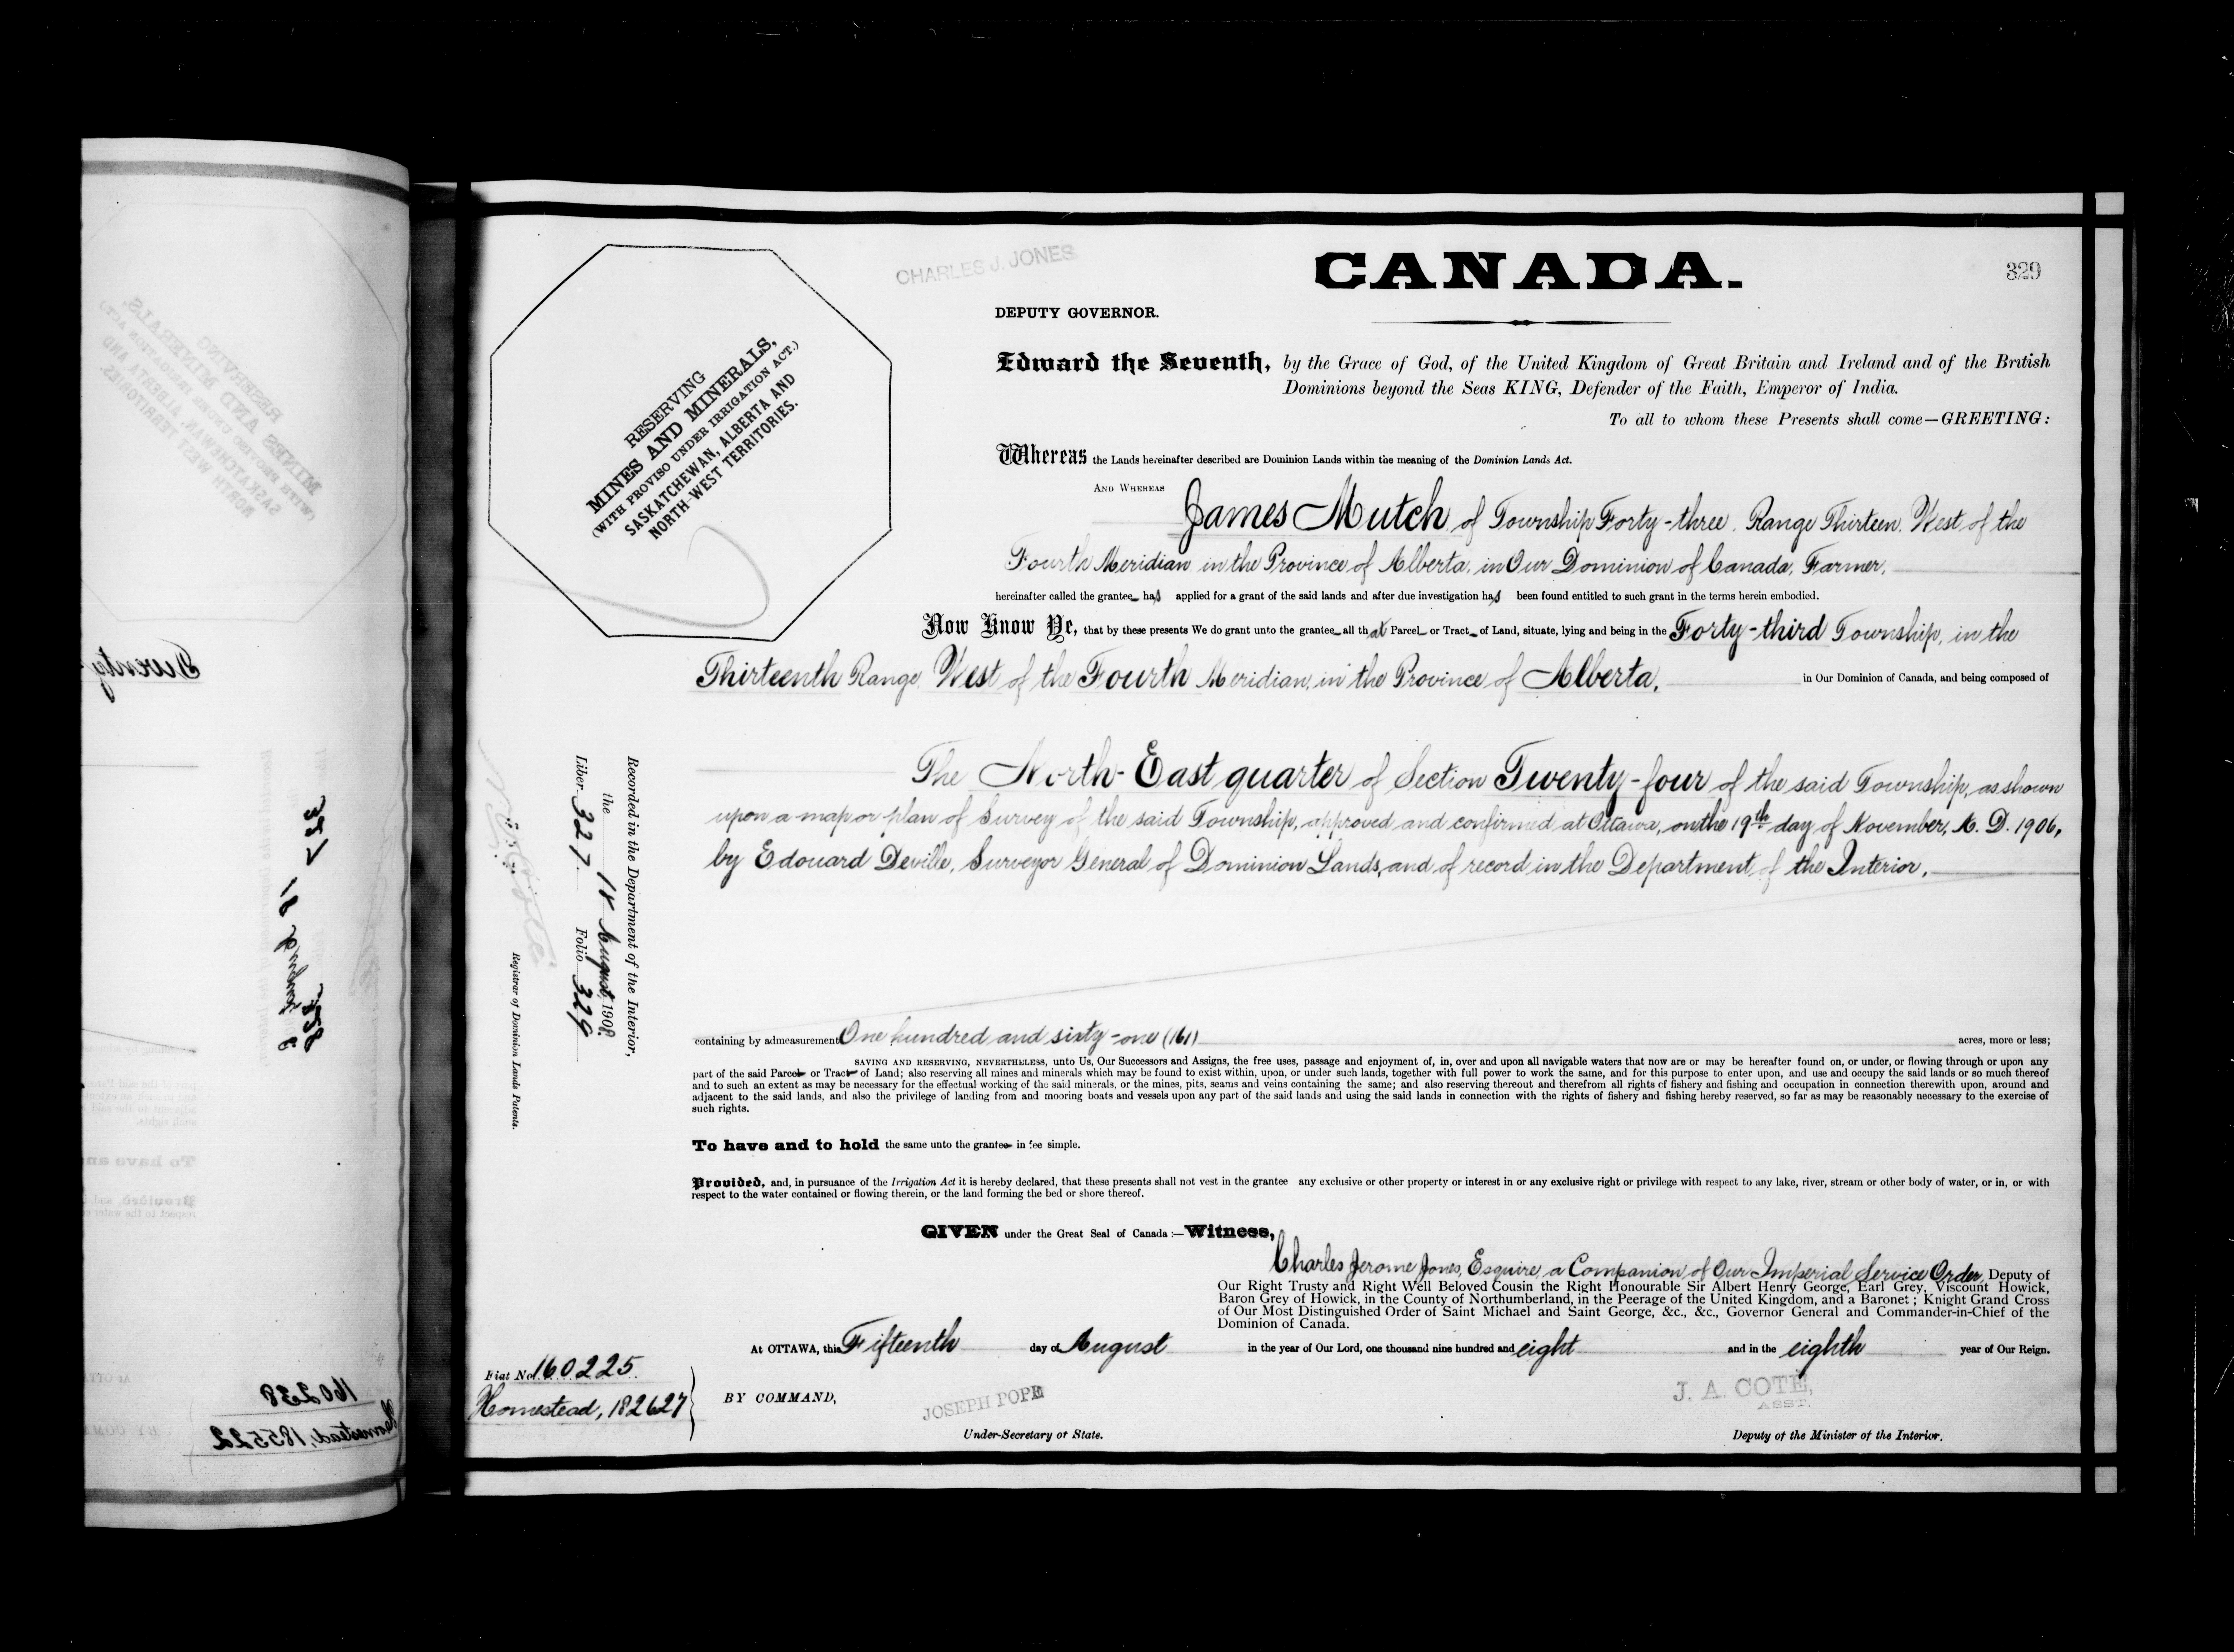 CHARLES J. JONES
CANADA.
329
DEPUTY GOVERNOR.
RESERVING
MINES AND MINERALS,
(WITH PROVISO UNDER IRRIGATION ACT.)
SASKATCHEWAN, ALBERTA AND
NORTH-WEST TERRITORIES.
Edward the Seventh, by the Grace of God, of the United Kingdom of Great Britain and Ireland and of the British
Dominions beyond the Seas KING, Defender of the Faith, Emperor of India.
To all to whom these Presents shall come—GREETING:
Whereas the Lands hereinafter described are Dominion Lands within the meaning of the Dominion Lands Act.
AND WHEREAS James Mutch of Township Forty-three, Range Thirteen, West of the
Fourth Meridian in the Province of Alberta, in Our Dominion of Canada, Farmer,
hereinafter called the grantee has applied for a grant of the said lands and after due investigation has been found entitled to such grant in the terms herein embodied.
Now Know Ye, that by these presents We do grant unto the grantee all that Parcel or Tract of Land, situate, lying and being in the Forty-third Township, in the
Thirteenth Range, West of the Fourth Meridian, in the Province of Alberta, in Our Dominion of Canada, and being composed of
The North-East quarter of Section Twenty-four of the said Township, as shown
upon a map or plan of Survey of the said Township, approved and confirmed at Ottawa, on the 19th day of November, A. D. 1906,
by Edouard Deville, Surveyor General of Dominion Lands, and of record in the Department of the Interior,
Recorded in the Department of the Interior,
the 18 August, 1908.
Liber 327. Folio 329
Registrar of Dominion Lands Patents.
containing by admeasurement One hundred and sixty-one (161) acres, more or less;
SAVING AND RESERVING, NEVERTHELESS, unto Us, Our Successors and Assigns, the free uses, passage and enjoyment of, in, over and upon all navigable waters that now are or may be hereafter found on, or under, or flowing through or upon any
part of the said Parcel or Tract of Land; also reserving all mines and minerals which may be found to exist within, upon, or under such lands, together with full power to work the same, and for this purpose to enter upon, and use and occupy the said lands or so much thereof
and to such an extent as may be necessary for the effectual working of the said minerals, or the mines, pits, seams and veins containing the same; and also reserving thereout and therefrom all rights of fishery and fishing and occupation in connection therewith upon, around and
adjacent to the said lands, and also the privilege of landing from and mooring boats and vessels upon any part of the said lands and using the said lands in connection with the rights of fishery and fishing hereby reserved, so far as may be reasonably necessary to the exercise of
such rights.
To have and to hold the same unto the grantee in fee simple.
Provided, and, in pursuance of the Irrigation Act it is hereby declared, that these presents shall not vest in the grantee any exclusive or other property or interest in or any exclusive right or privilege with respect to any lake, river, stream or other body of water, or in, or with
respect to the water contained or flowing therein, or the land forming the bed or shore thereof.
GIVEN under the Great Seal of Canada:—Witness,
Charles Jerome Jones, Esquire, a Companion of Our Imperial Service Order, Deputy of
Our Right Trusty and Right Well Beloved Cousin the Right Honourable Sir Albert Henry George, Earl Grey, Viscount Howick,
Baron Grey of Howick, in the County of Northumberland, in the Peerage of the United Kingdom, and a Baronet; Knight Grand Cross
of Our Most Distinguished Order of Saint Michael and Saint George, &c., &c., Governor General and Commander-in-Chief of the
Dominion of Canada.
At OTTAWA, this Fifteenth day of August in the year of Our Lord, one thousand nine hundred and eight and in the eighth year of Our Reign.
Fiat No. 160225.
Homestead, 182627
BY COMMAND,
JOSEPH POPE
Under-Secretary of State.
J. A. COTE,
ASST.
Deputy of the Minister of the Interior.